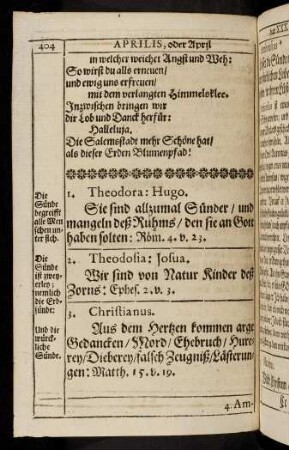 404
APRILIS, oder Apryl
in welcher weicher Angst und Weh:
So wirst du alls erneuen/
und ewig uns erfreuen/
mit dem verlangten Himmelsklee.
Inzwischen bringen wir
dir Lob und Danck herfür:
Halleluja.
Die Salemsstadt mehr Schöne hat/
als dieser Erden Blumenpfad!
Die
Sünde
begreifft
alle Men
schen un-
ter sich.
1. Theodora: Hugo.
Sie sind allzumal Sünder/ und
mangeln deß Ruhms/ den sie an Gott
haben solten: Röm. 4. v. 23.
Die
Sünde
ist zwey-
erley;
nemlich
die Erb-
sünde:
2. Theodosia: Josua.
Wir sind von Natur Kinder deß
Zorns: Ephes. 2. v. 3.
Und die
würck-
liche
Sünde.
3. Christianus.
Aus dem Hertzen kommen arge
Gedancken/ Mord/ Ehebruch/ Hure-
rey/ Dieberey/ falsch Zeugniß/ Läsierun-
gen: Matth. 15. v. 19.
4. Am-